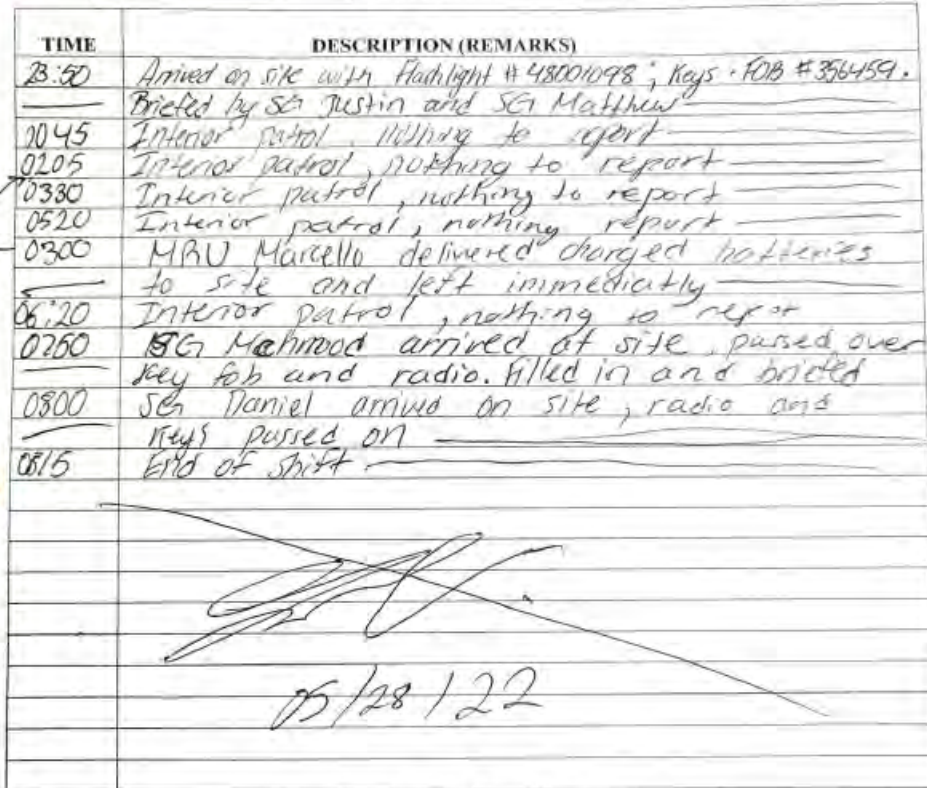 TIME DESCRIPTION (REMARKS)
23:50 Arrived on site with Flashlight # 48001098; Keys - FOB # 356459.
Briefed by SG Justin and SG Matthew
0045 Interior patrol, nothing to report
0205 Interior patrol, nothing to report
0330 Interior patrol, nothing to report
0520 Interior patrol, nothing report
0300 MRU Marcello delivered charged batteries
to site and left immediatly
06:20 Interior patrol, nothing to repor
0750 SG Mahmood arrived at site, passed over
key fob and radio. filled in and briefed
0800 SG Daniel arrived on site, radio and
keys passed on
0815 End of shift
05/28/22